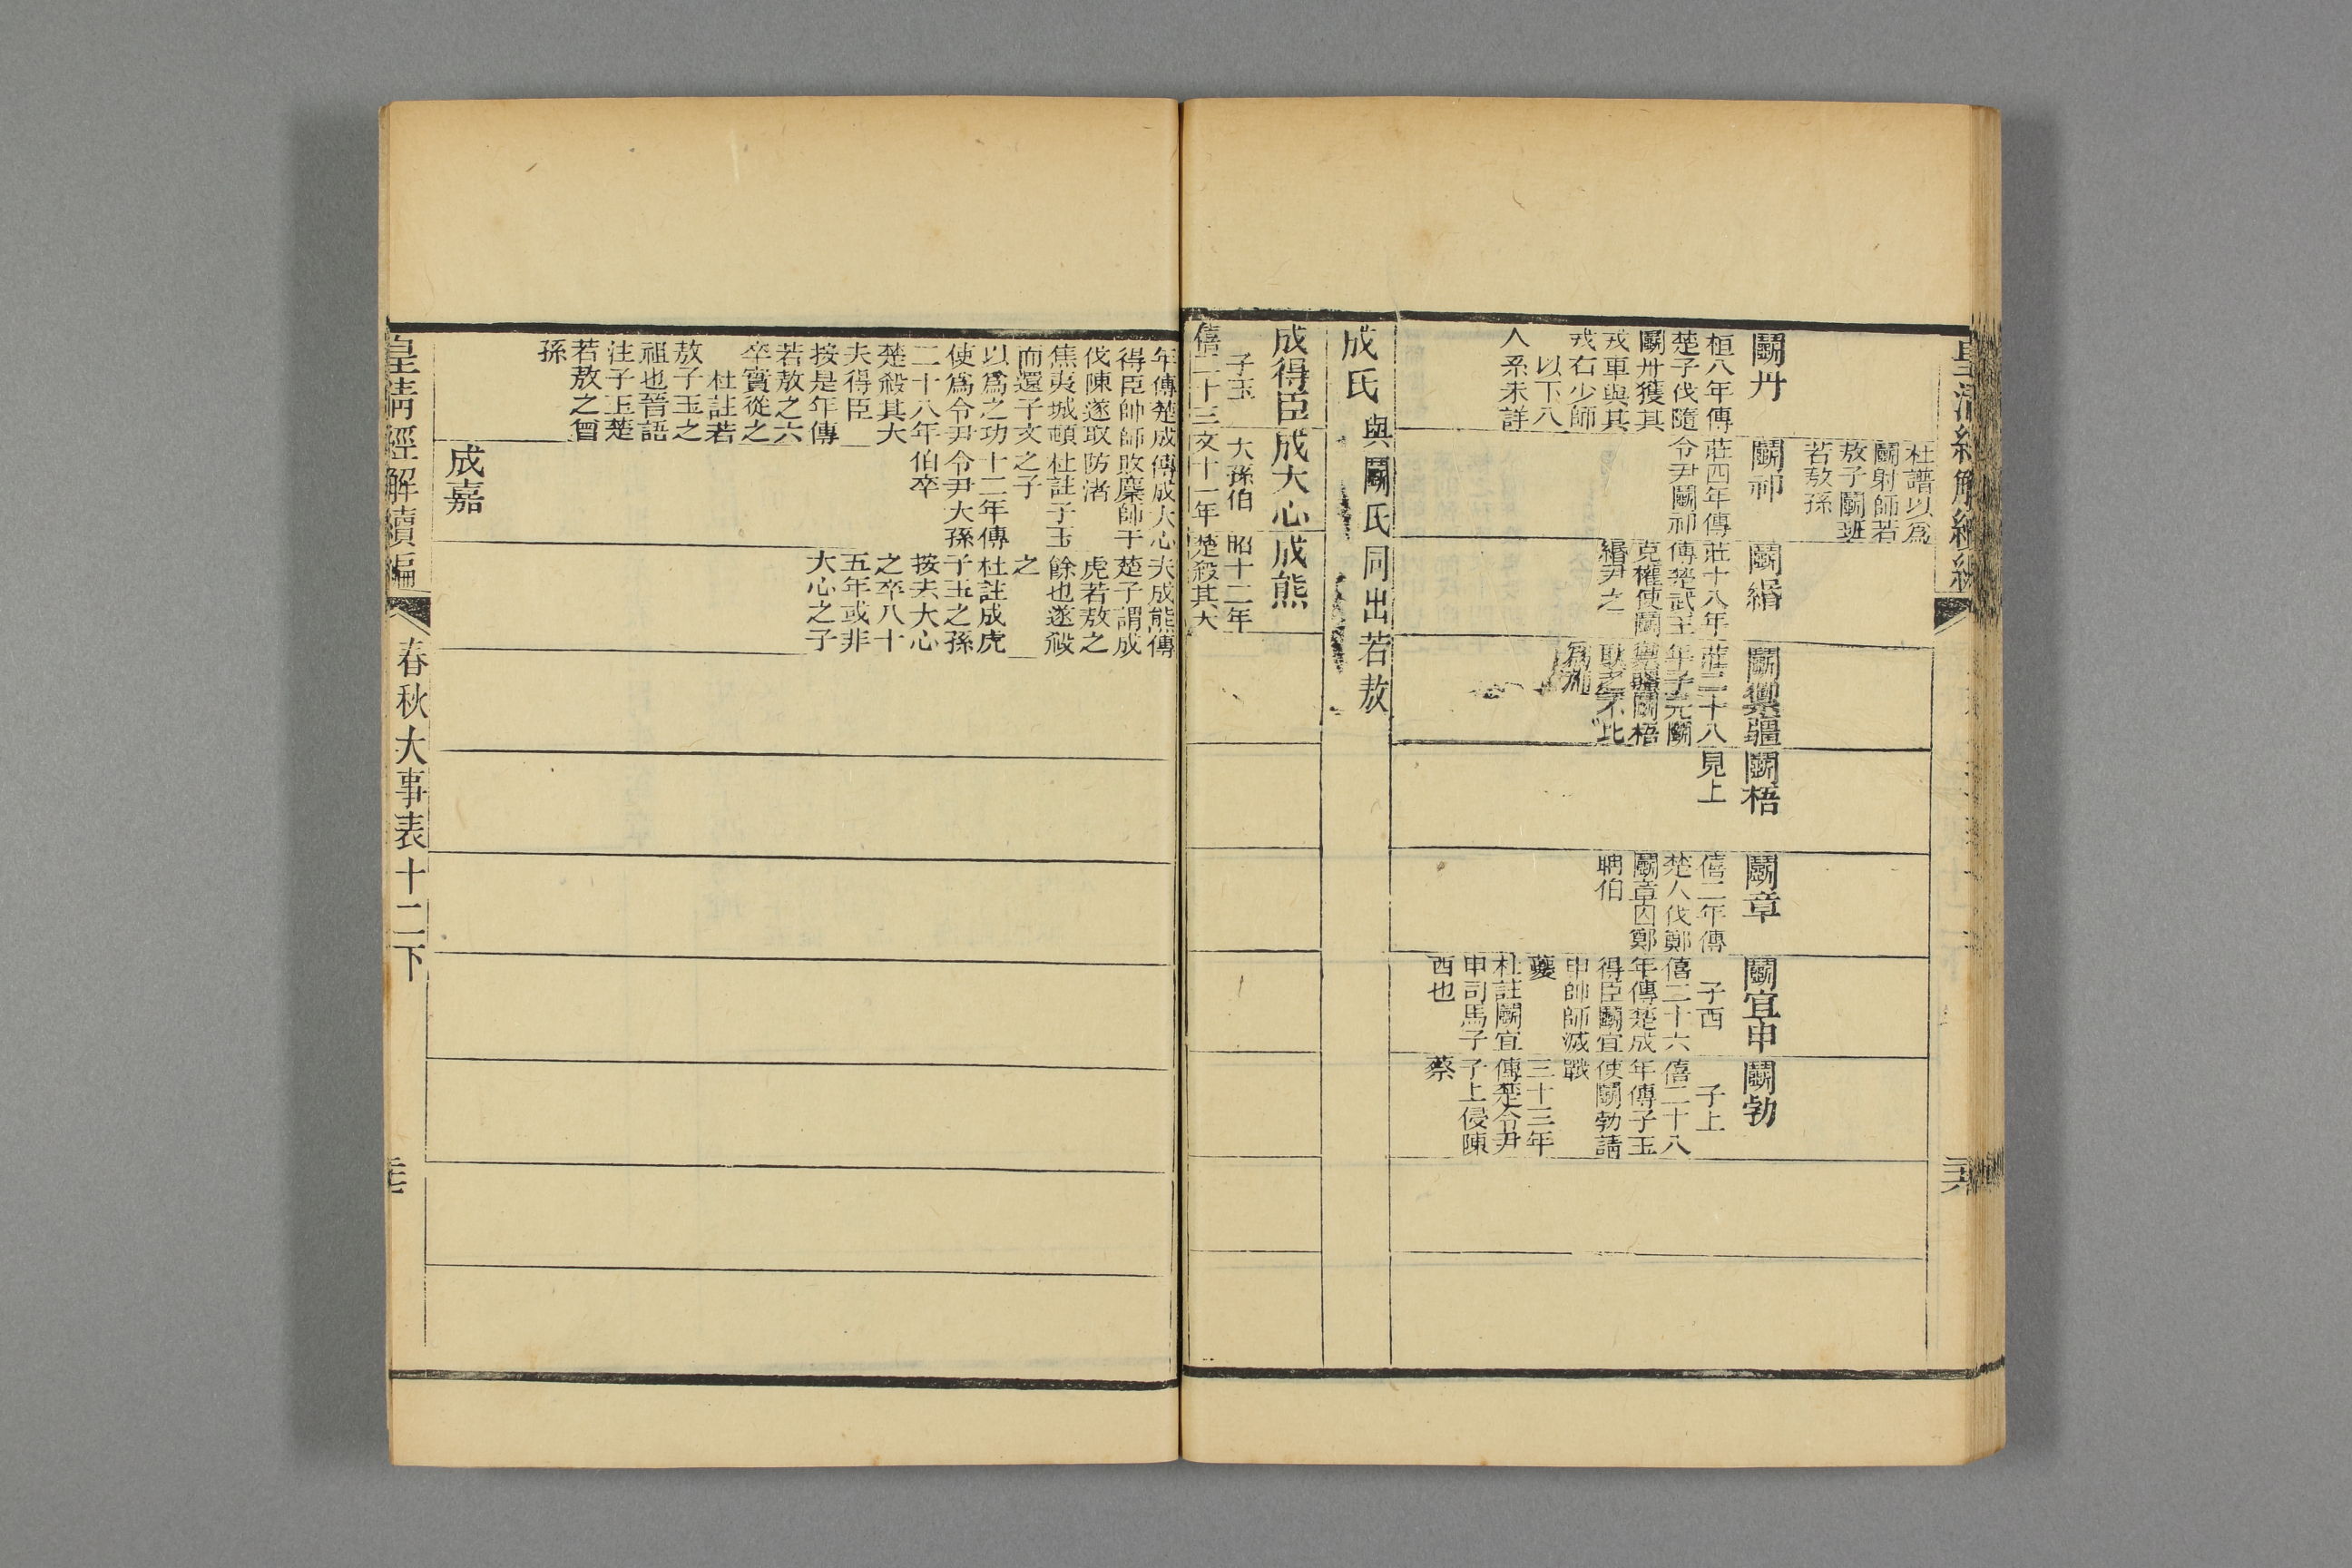 杜譜以爲
鬭射師若
敖子鬭班
若敖孫
鬭丹
桓八年傳
楚子伐隨
鬭丹獲其
戎車與其
戎右少師
以下八
人系未詳
鬭祁
莊四年傳
令尹鬭祁
鬭緡
莊十八年
傳楚武王
克權使鬭
緡尹之
鬭禦疆
莊二十八
年子元鬭
禦疆鬭梧
耿之不比
爲旆
鬭梧
見上
鬭章
僖二年傳
楚人伐鄭
鬭章囚鄭
聃伯
鬭宜申
子西
僖二十六
年傳楚成
得臣鬭宜
申帥師滅
夔
杜註鬭宜
申司馬子
西也
鬭勃
子上
僖二十八
年傳子玉
使鬭勃請
戰
三十三年
傳楚令尹
子上侵陳
蔡
成氏 與鬭氏同出若敖
成得臣
子玉
僖二十三
年傳楚成
得臣帥師
伐陳遂取
焦夷城頓
而還子文
以爲之功
使爲令尹
二十八年
楚殺其大
夫得臣
按是年傳
若敖之六
卒實從之
杜註若
敖子玉之
祖也晉語
注子玉楚
若敖之曾
孫
成大心
大孫伯
文十一年
傳成大心
敗麇師于
防渚
杜註子玉
之子
十二年傳
令尹大孫
伯卒
成熊
昭十二年
楚殺其大
夫成熊傳
楚子謂成
虎若敖之
餘也遂殺
之
杜註成虎
子玉之孫
按去大心
之卒八十
五年或非
大心之子
成嘉
皇清經解續編
春秋大事表十二下